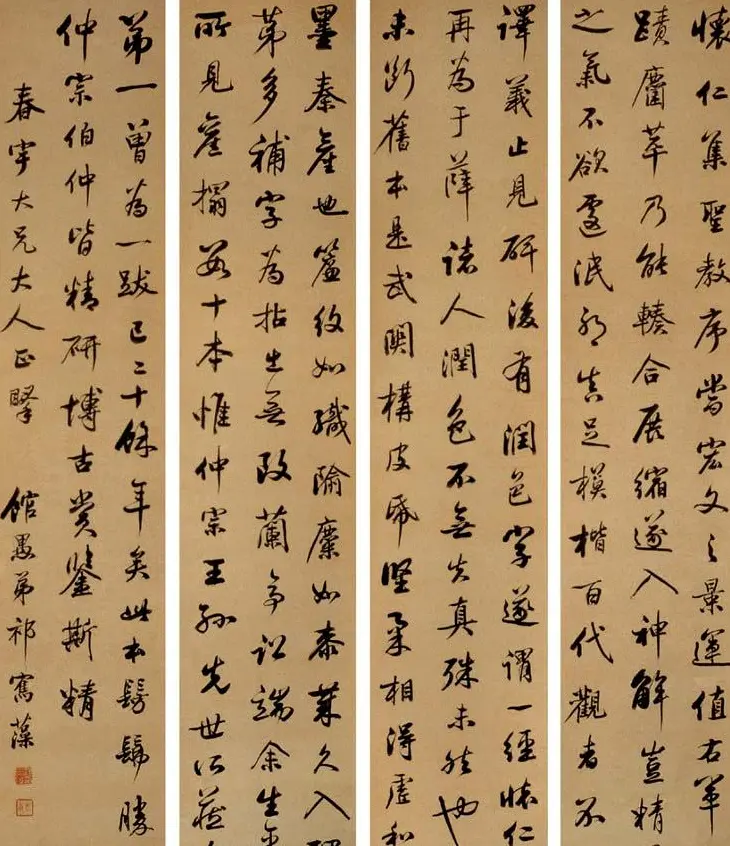 懷仁集聖教序當宏文之景運值右軍
蹟麕萃乃能輳合展縮遂入神解豈精
之氣不欲遽泯耶真足模楷百代觀者不
譯義止見研後有潤色字遂謂一經懷仁
再為于薛諸人潤色不無失真殊未然也
未斷舊本是武關構皮紙堅柔相得虛和
墨秦產也簾紋如織隃麋如漆久入
第多補字為拈出無改蘭亭訟端余生平
所見舊搨數十本惟仲宗王孫先世所藏
第一曾為一跋已二十餘年矣此本髣髴勝
仲宗伯仲皆精研博古賞鑒斯精
春宇大兄大人正 館愚弟祁寯藻